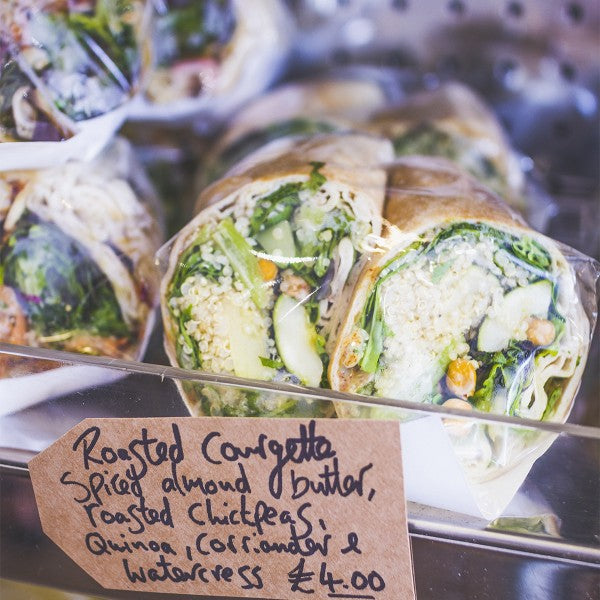 Roasted Courgette
Spicy almond butter,
roasted Chickpeas,
Quinoa, Corriander &
Watercress £4.00